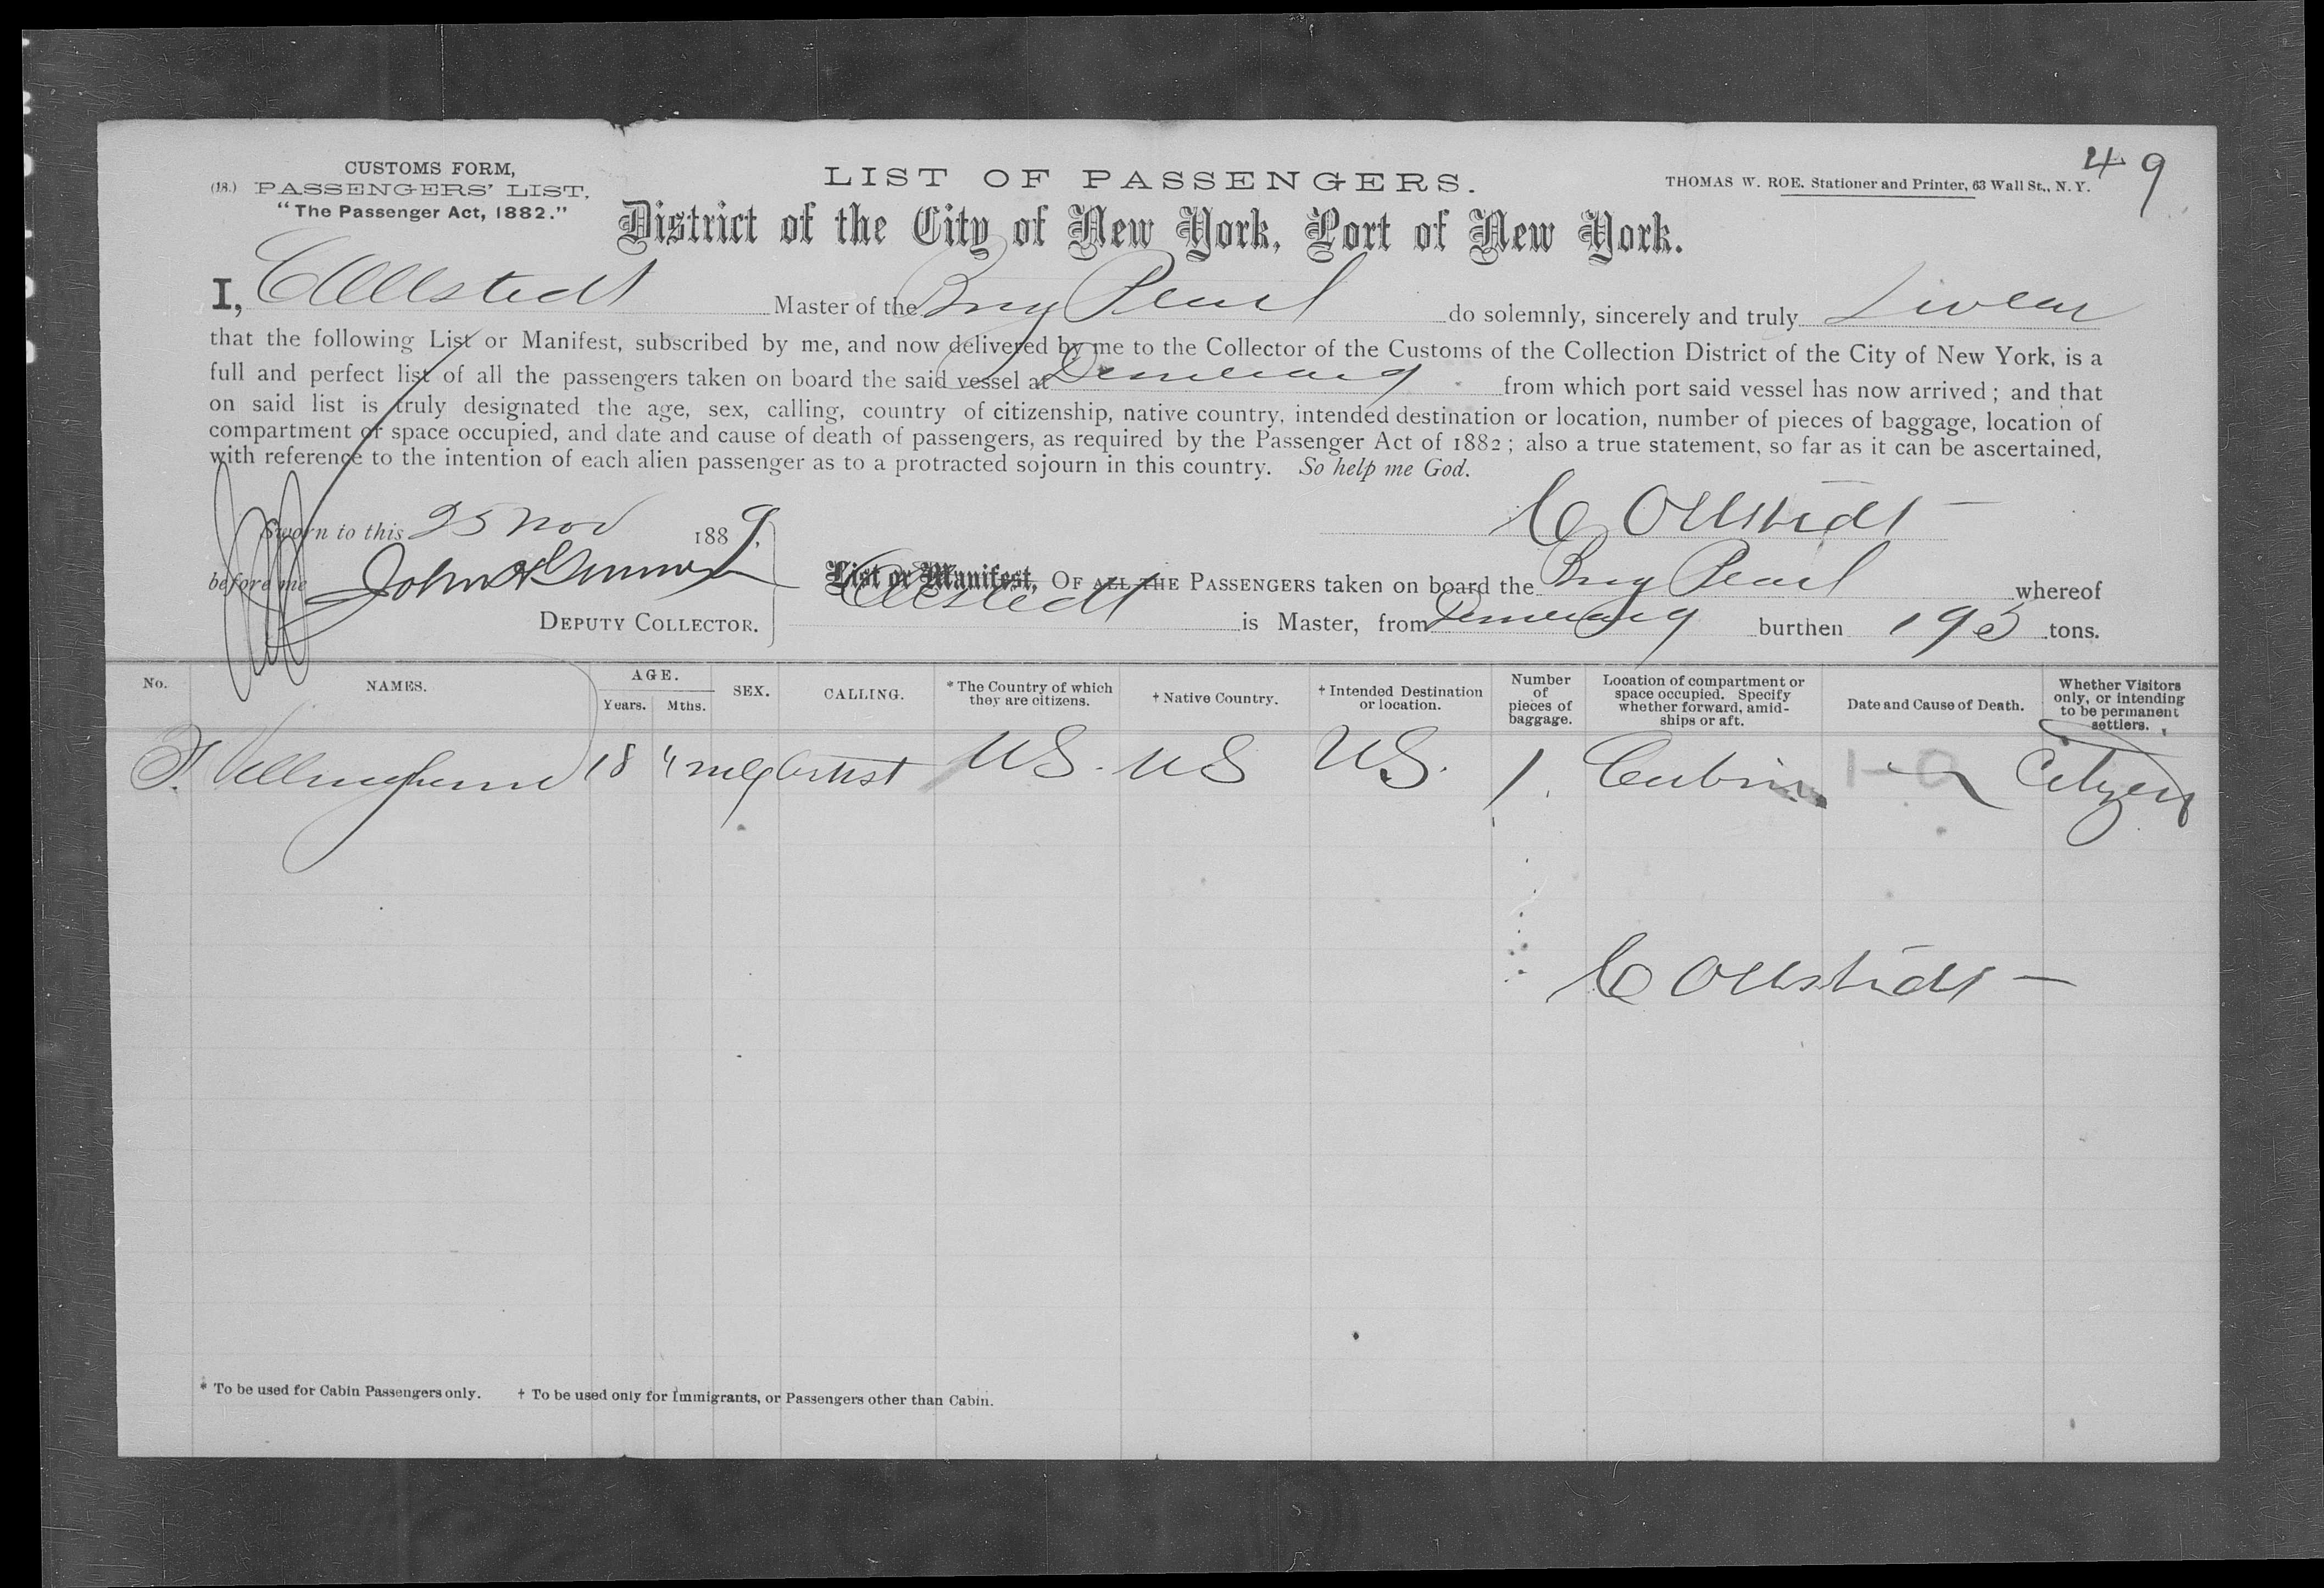 49
CUSTOMS FORM,
(18.) PASSENGERS' LIST.
"The Passenger Act, 1882."
LIST OF PASSENGERS.
THOMAS W. ROE, Stationer and Printer, 63 Wall St., N. Y.
District of the City of New York, Port of New York.
I, C Ollstedt Master of the Brig Pearl do solemnly, sincerely and truly Swear
that the following List or Manifest, subscribed by me, and now delivered by me to the Collector of the Customs of the Collection District of the City of New York, is a
full and perfect list of all the passengers taken on board the said vessel at Demerary from which port said vessel has now arrived; and that
on said list is truly designated the age, sex, calling, country of citizenship, native country, intended destination or location, number of pieces of baggage, location of
compartment or space occupied, and date and cause of death of passengers, as required by the Passenger Act of 1882; also a true statement, so far as it can be ascertained,
with reference to the intention of each alien passenger as to a protracted sojourn in this country. So help me God.
C Ollstedt
Sworn to this 25 Nov 1889,
before me John
DEPUTY COLLECTOR.
List or Manifest, OF ALL THE PASSENGERS taken on board the Brig Pearl whereof
C Ollstedt is Master, from Demerary burthen 195 tons.
No. NAMES. AGE. Years. Mths. SEX. CALLING. * The Country of which they are citizens. † Native Country. † Intended Destination or location. Number of pieces of baggage. Location of compartment or space occupied. Specify whether forward, amidships or aft. Date and Cause of Death. Whether Visitors only, or intending to be permanent settlers.
F. 18 4 male artist US. US US. 1. Cabin Citizen
C Ollstedt
* To be used for Cabin Passengers only. † To be used only for Immigrants, or Passengers other than Cabin.